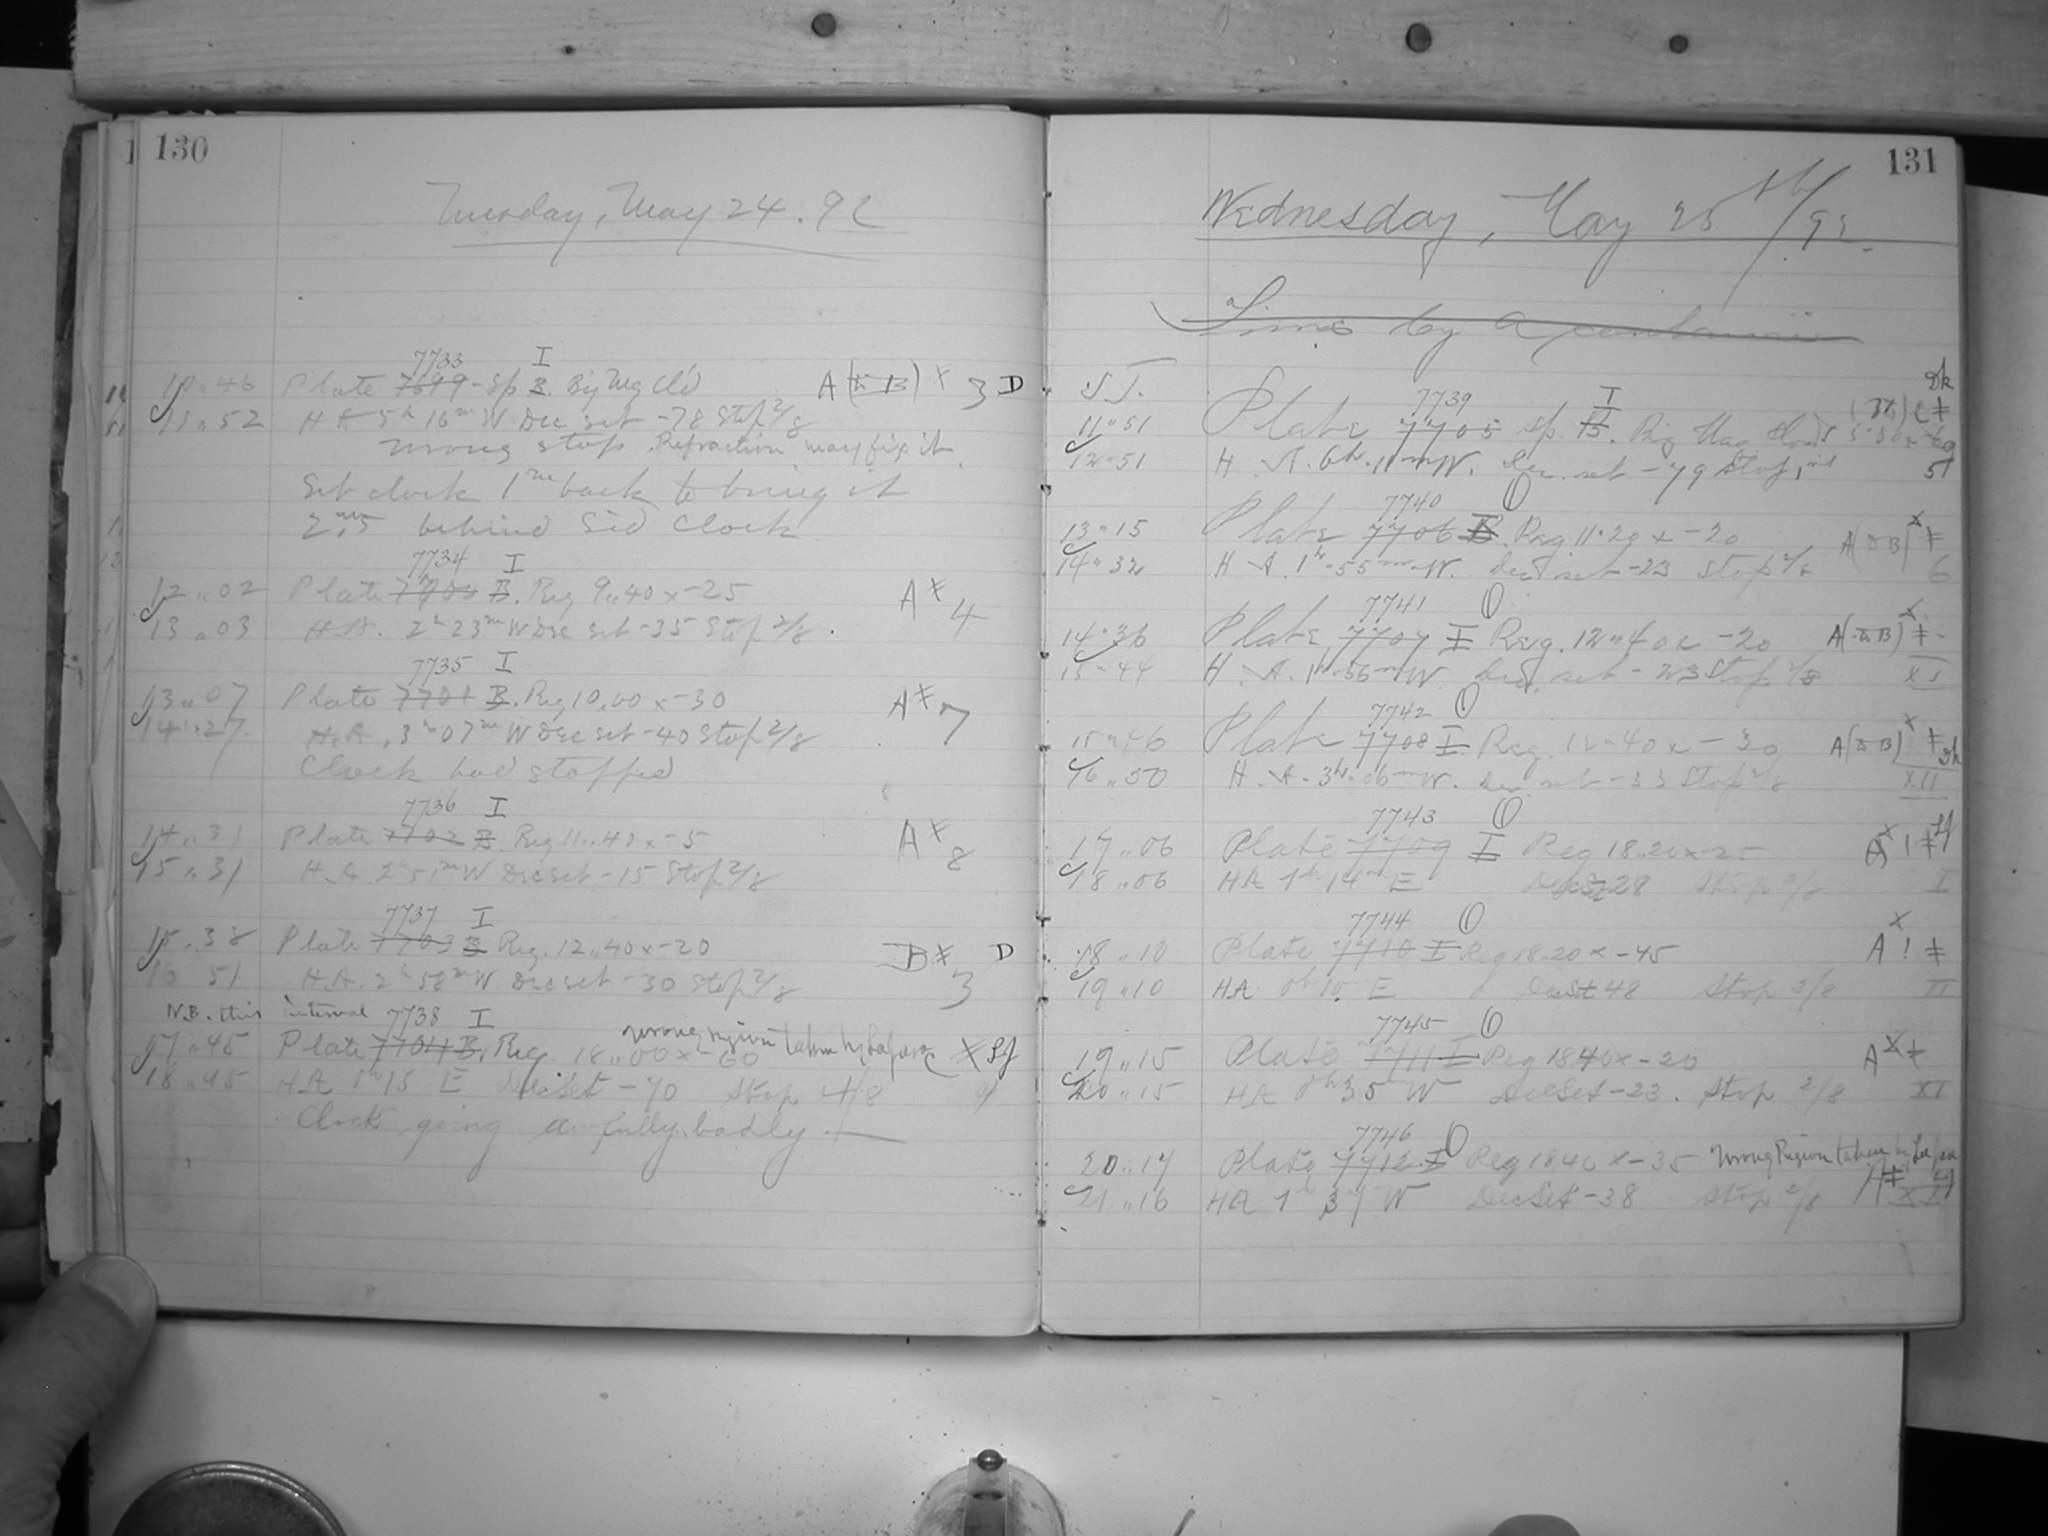 130
Tuesday, May 24. 92
7733 I
10 " 46 Plate 7699 - Sp B. Big Mg Cl'd A (D B) x 3 D
11 " 52 H A 5h 16m W Dec set -78 Stop 2/8
wrong stop. Refraction may fix it.
Set clock 1m back to bring it
2m.5 behind Sid Clock
7734 I
12 " 02 Plate 7700 B. Reg 9 " 40 x -25 A ≠ 4
13 " 03 H.A. 2h 23m W Dec set -35 Stop 2/8.
7735 I
13 " 07 Plate 7701 B. Reg 10 " 00 x -30 A ≠ 7
14 " 27 H.A. 3h 07m W Dec set -40 Stop 2/8
Clock had stopped
7736 I
14 " 31 Plate 7702 B. Reg 11 " 40 x -5 A ≠ 8
15 " 31 H.A. 2h 51m W Dec set -15 Stop 2/8
7737 I
15 " 38 Plate 7703 B Reg. 12 " 40 x -20 B ≠ 3 D
16 51 H.A. 2h 58m W Dec set -30 Stop 2/8
N.B. this interval 7738 I
wrong region taken by
17 " 45 Plate 7704 B. Reg. 18 " 00 x -60
18 " 45 HA 0h 15 E Dec Set -70 Stop 4/8
Clock going awfully badly.
131
Wednesday, May 25th/92.
Time by
S.T. 7739 I
11 " 51 Plate 7705 Sp. B. Big Mag
12 " 51 H. A. 6h. 11m W. Dec. set -79 Stop 5
7740 I
13 " 15 Plate 7706 B. Reg 11 " 20 x -20 A (D B) x ≠
14 " 32 H. A. 1h - 55m W. Dec set -23 Stop 2/8 6
7741 I
14 " 36 Plate 7707 I Reg. 12 " 40 x -20 A (D B) x ≠
15 " 44 H. A. 1h - 56m W. Dec. set -23 Stop 2/8 XI
7742 I
15 " 46 Plate 7708 I Reg. 12 " 40 x -30 A (D B) x ≠
16 " 50 H. A. 3h. 06m W. Dec. set -33 Stop 2/8 XII
7743 I
17 " 06 Plate 7709 I Reg 18 " 20 x -25 A x ! ≠
18 " 06 HA 1h 14m E Dec Set 28 Stop 2/8 I
7744 I
18 " 10 Plate 7710 I Reg 18 20 x -45 A x ! ≠
19 " 10 HA 0h 10m E Dec Set 48 Stop 2/8 II
7745 I
19 " 15 Plate 7711 I Reg 18 40 x -20 A x ≠
20 " 15 HA 0h 35m W Dec Set -23. Stop 2/8 XI
7746 I
20 " 17 Plate 7712 I Reg 18 40 x -35 wrong Region taken by
21 " 16 HA 1h 37 W Dec Set -38 Stop 2/8 A ≠